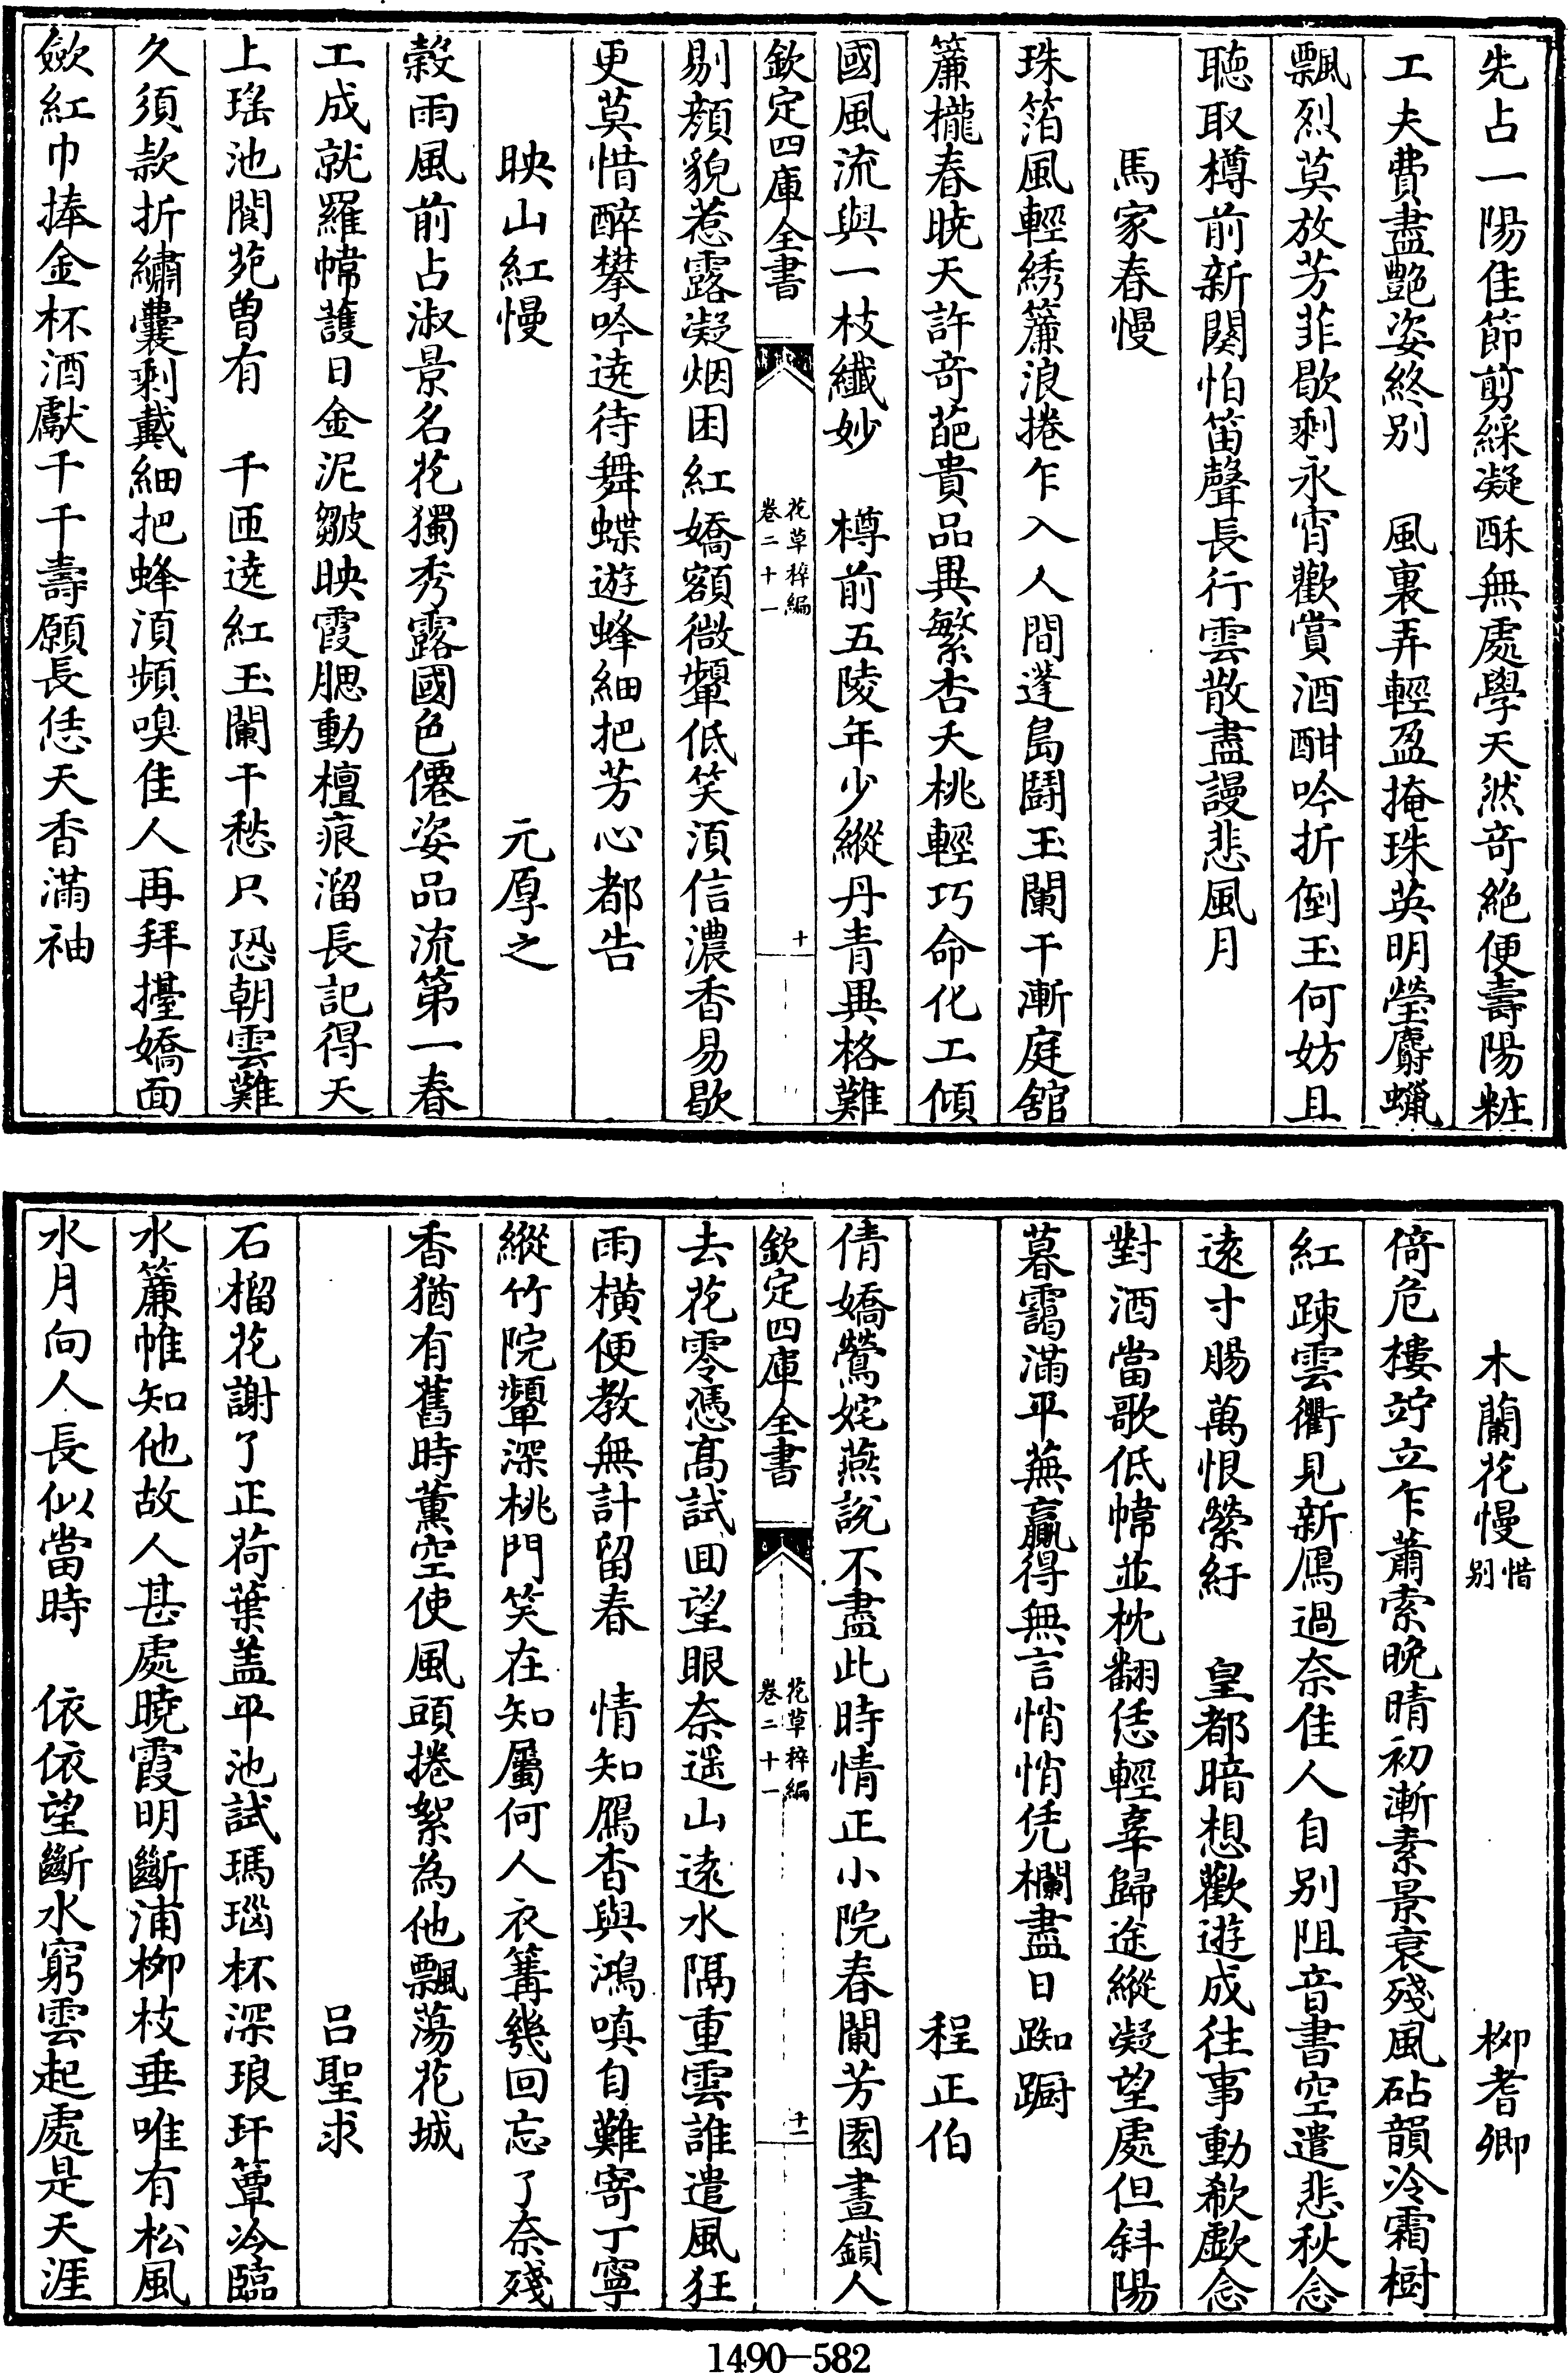 先占一陽佳節剪綵凝酥無處學天然奇絶便壽陽粧
工夫費盡艶姿終别　風裏弄輕盈掩珠英明瑩麝蠟
飄烈莫放芳菲歇剩永宵歡賞酒酣吟折倒玉何妨且
聴取樽前新闋怕笛聲長行雲散盡謾悲風月
馬家春慢
珠箔風輕綉簾浪捲乍入人間蓬島鬪玉闌干漸庭舘
簾櫳春曉天許奇葩貴品異繁杏夭桃輕巧命化工傾
國風流與一枝纖妙　樽前五陵年少縱丹青異格難
欽定四庫全書
花草稡編
卷二十一
十
剔顔貌惹露凝烟困紅嬌額微顰低笑須信濃香易歇
更莫惜醉攀吟遶待舞蝶遊蜂細把芳心都告
映山紅慢　元厚之
穀雨風前占淑景名花獨秀露國色僊姿品流第一春
工成就羅幃護日金泥皺映霞腮動檀痕溜長記得天
上瑤池閬苑曽有　千匝遶紅玉闌干愁只恐朝雲難
久須款折繡囊剩戴細把蜂湏頻嗅佳人再拜擡嬌面
歛紅巾捧金杯酒獻千千壽願長恁天香滿袖
木蘭花慢惜别　柳耆卿
倚危樓竚立乍蕭索晚晴初漸素景衰殘風砧韻冷霜樹
紅疎雲衢見新鴈過奈佳人自别阻音書空遣悲秋念
逺寸腸萬恨縈紆　皇都暗想歡遊成往事動欷歔念
對酒當歌低幃並枕翻恁輕辜歸途縱凝望處但斜陽
暮靄滿平蕪贏得無言悄悄凭欄盡日踟蹰
程正伯
倩嬌鶯姹燕說不盡此時情正小院春闌芳園晝鎖人
欽定四庫全書
花草稡編
卷二十一
十一
去花零憑髙試囬望眼奈遥山逺水隔重雲誰遣風狂
雨横便教無計留春　情知鴈杳與鴻嗔自難寄丁寧
縱竹院顰深桃門笑在知屬何人衣篝幾回忘了奈殘
香猶有舊時薰空使風頭捲絮為他飄蕩花城
吕聖求
石榴花謝了正荷葉盖平池試瑪瑙杯深琅玕簟冷臨
水簾帷知他故人甚處曉霞明斷浦柳枝垂唯有松風
水月向人長似當時　依依望斷水窮雲起處是天涯
1490-582